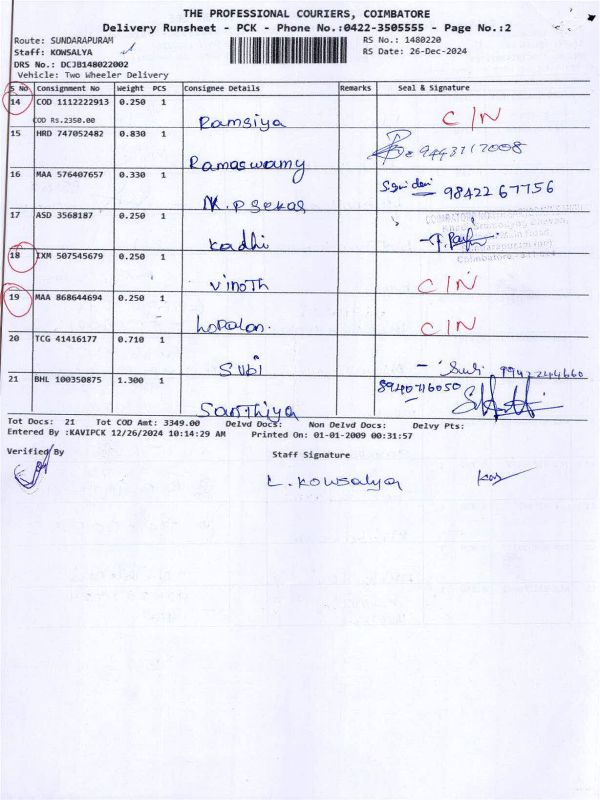 THE PROFESSIONAL COURIERS, COIMBATORE
Delivery Runsheet - PCK - Phone No.:0422-3505555 - Page No.:2
Route: SUNDARAPURAM RS No.: 1480220
Staff: KOWSALYA RS Date: 26-Dec-2024
DRS No.: DCJB148022002
Vehicle: Two Wheeler Delivery
S No Consignment No Weight PCS Consignee Details Remarks Seal & Signature
14 COD 1112222913 0.250 1
COD Rs.2350.00 Ramsiya C/N
15 HRD 747052482 0.830 1
Ramaswamy
16 MAA 576407657 0.330 1 98422 67756
17 ASD 3568187 0.250 1
Kadhi
18 IXM 507545679 0.250 1
Vinoth C/N
19 MAA 868644694 0.250 1
C/N
20 TCG 41416177 0.710 1
Subi
21 BHL 100350875 1.300 1
Tot Docs: 21 Tot COD Amt: 3349.00 Delvd Docs: Non Delvd Docs: Delvy Pts:
Entered By :KAVIPCK 12/26/2024 10:14:29 AM Printed On: 01-01-2009 00:31:57
Verified By Staff Signature
L. Kowsalya